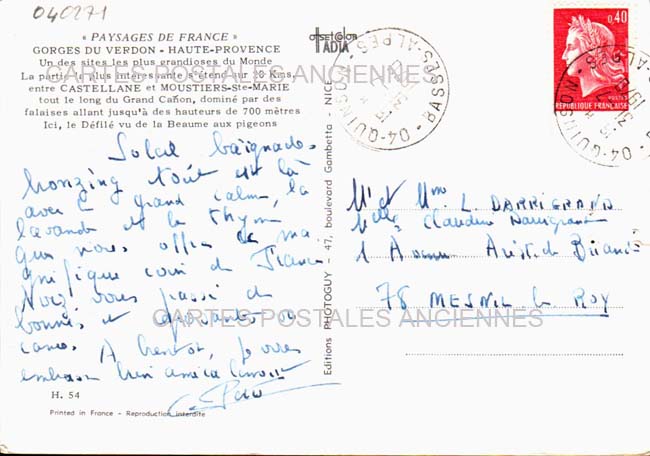 040271
« PAYSAGES DE FRANCE »
GORGES DU VERDON - HAUTE-PROVENCE
Un des sites les plus grandioses du Monde
La partie la plus intéressante s'étend sur 20 Kms.
entre CASTELLANE et MOUSTIERS-Ste-MARIE
tout le long du Grand Cañon, dominé par des
falaises allant jusqu'à des hauteurs de 700 mètres
Ici, le Défilé vu de la Beaume aux pigeons
Soleil baignade
bronzing tout est là
avec grand calme, la
lavande et le thym
que nous offre ce ma
gnifique coin de France
vous
bonnes et
A bientôt, je vous
embrasse bien
H. 54
Printed in France - Reproduction interdite
offset-color
IADIA
Editions PHOTOGUY - 47, boulevard Gambetta - NICE
04-QUINSON BASSES-ALPES
0,40
REPUBLIQUE FRANÇAISE
POSTES
04-QUINSON
Mr et Mme L. DARRIGRAND
Melle Claudine Darrigrand
1 Avenue Aristide Briand
78 MESNIL le ROY
CARTES POSTALES ANCIENNES
CARTES POSTALES ANCIENNES